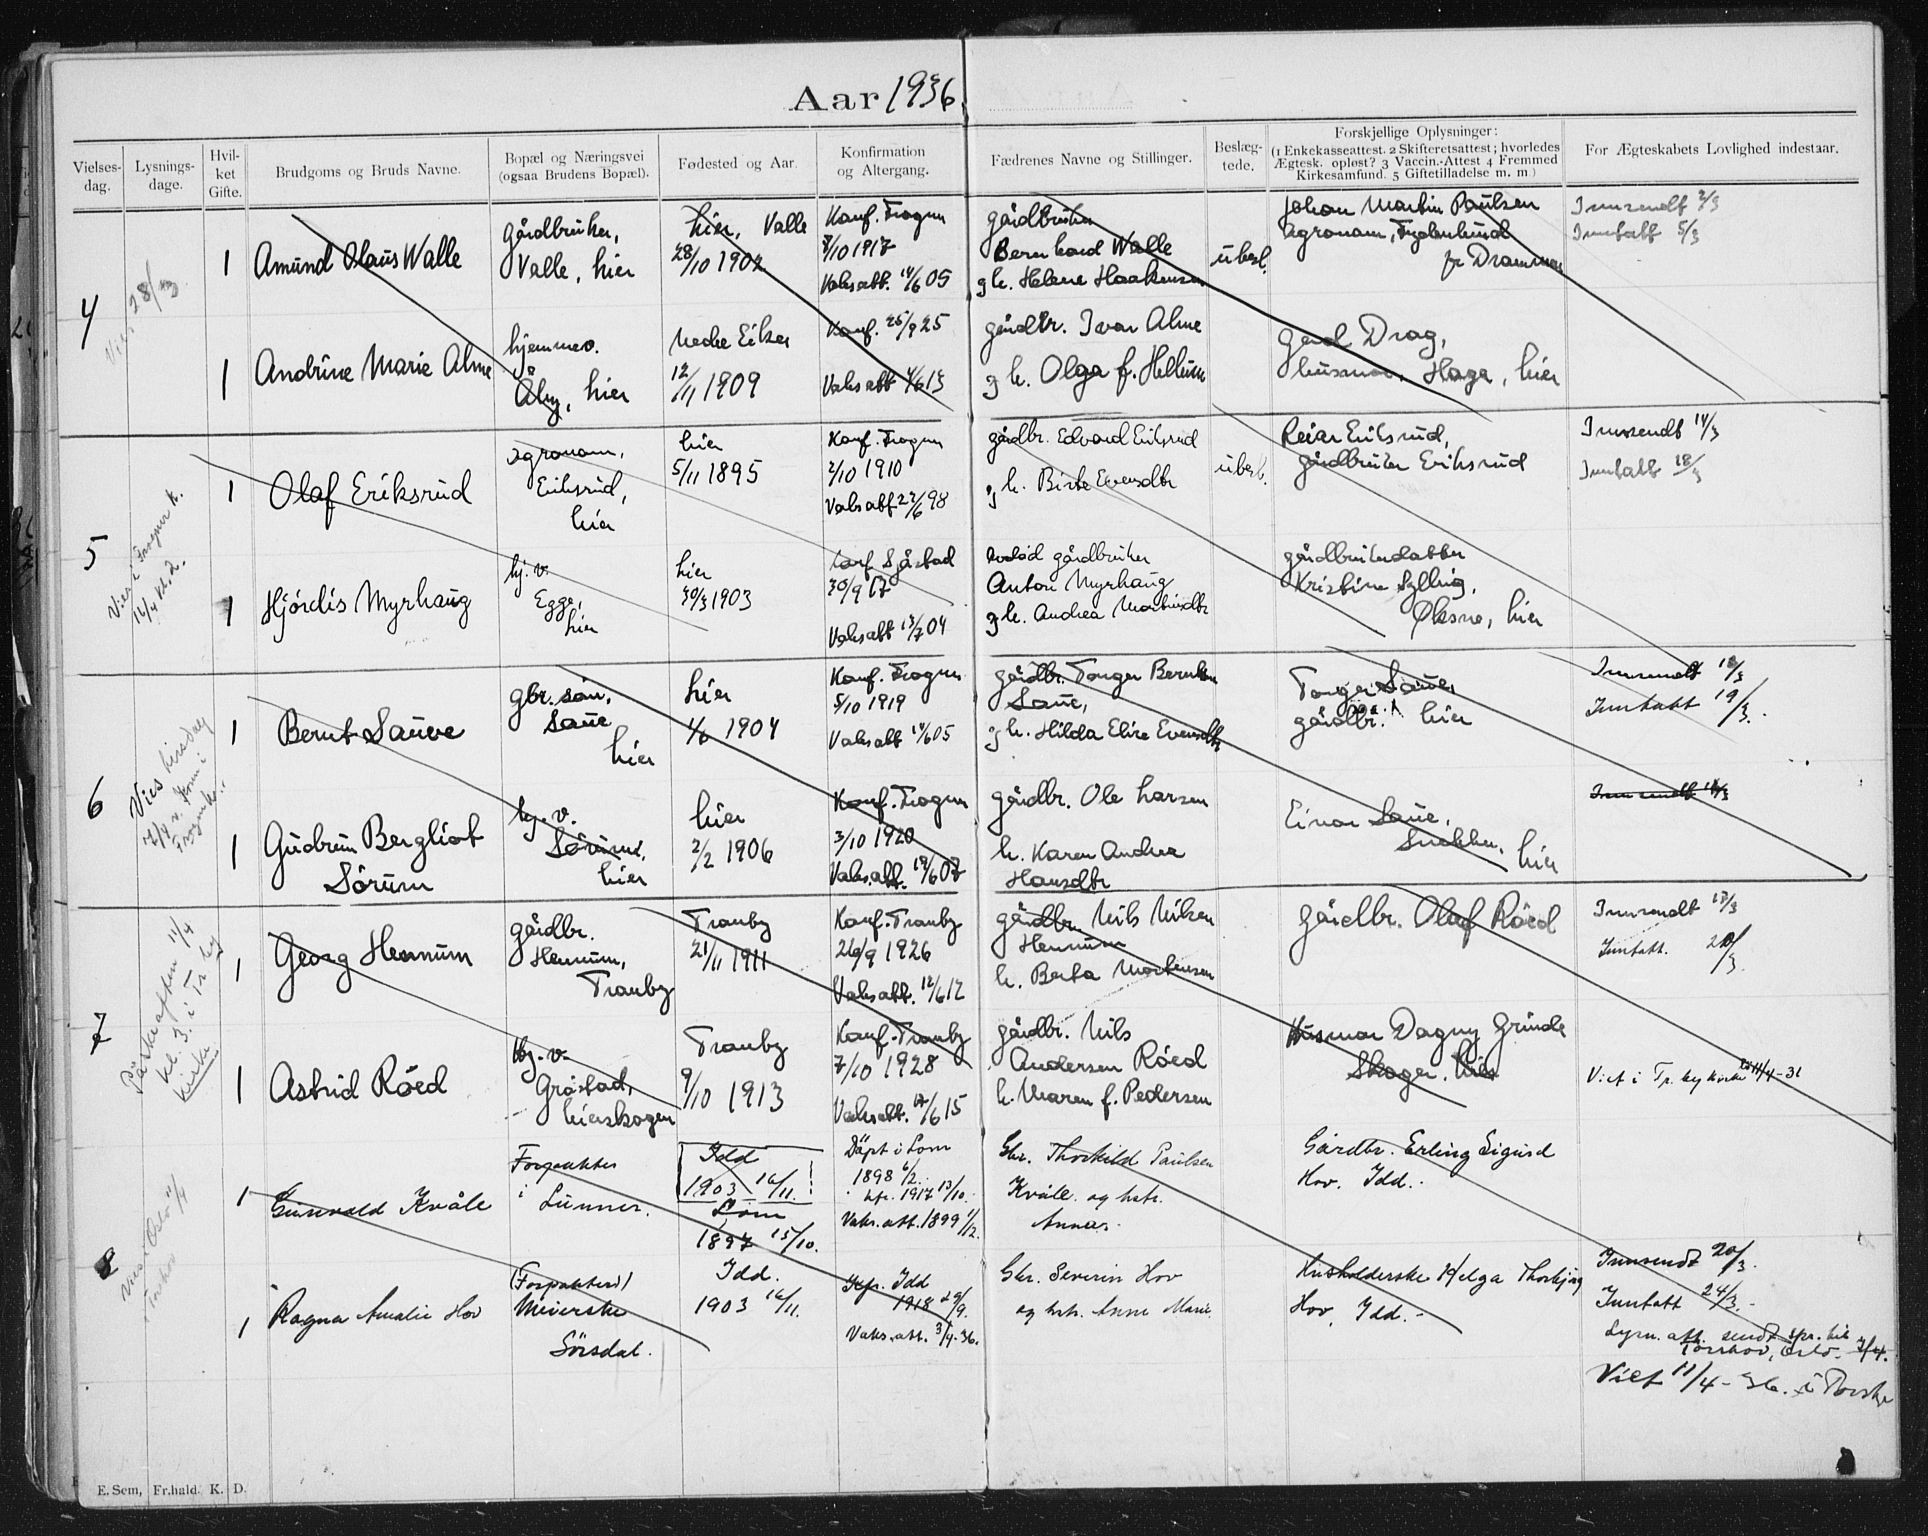 Aar 1936.
Vielses-dag.
Lysnings-dage.
Hvil-ket Gifte.
Brudgoms og Bruds Navne.
Bopæl og Næringsvei (ogsaa Brudens Bopæl).
Fødested og Aar.
Konfirmation og Altergang.
Fædrenes Navne og Stillinger.
Beslæg-tede.
Forskjellige Oplysninger: (1 Enkekasseattest. 2 Skifteretsattest; hvorledes Ægtesk. opløst? 3 Vaccin.-Attest 4 Fremmed Kirkesamfund. 5 Giftetilladelse m. m)
For Ægteskabets Lovlighed indestaar.
4
Vies 28/3
1
Amund Olaus Walle
gårdbruker,
Valle, hier
hier, Valle
28/10 1902
Konf. Frogner
7/10 1917
Vaksatt. 14/6 05
gårdbruker
Bernhard Walle
g h. Helene Haakensen
ubesl.
Johan Martin Paulsen
agronom,
fr Drammen
Innsendt 2/3
Inntatt 5/3
1
Andrine Marie Alme
hjemmev.
Åby, hier
Nedre Eiker
12/11 1909
Konf. 25/9 25
Vaksatt 4/6 13
gårdbr. Ivar Alme
g h. Olga f. Hellum
Gerd Drag,
husmor, Haga, hier
5
Vies i Frogner k.
12/4 kl. 2.
1
Olaf Eriksrud
agronom,
Eriksrud,
hier
hier
5/11 1895
Konf. Frogner
2/10 1910
Vaksatt 22/6 98
gårdbr. Edvard Eriksrud
g h. Birte Evensdtr
ubesl.
Reiar Eriksrud,
gårdbruker Eriksrud
Innsendt 14/3
Inntatt 18/3
1
Hjórdis Myrhaug
hj. v.
Egge,
hier
hier
30/3 1903
Konf Sjåstad
30/9 17
Vaksatt 13/7 04
avdöd gårdbruker
Anton Myrhaug
g h. Andrea Martinsdtr
gårdbrukerdatter
Kristine Sylling,
Öksne, hier
6
Vies tirsdag
Frognerk.
1
Bernt Sauve
gbr. sön,
Saue
hier
hier
1/6 1904
Konf. Frogner
5/10 1919
Vaksatt 14/6 05
gårdbr. Torger Berntsen
Saue,
g h. Hilda Elise Evensdtr
Torger Saue,
gårdbr. hier
Innsendt 18/3
Inntatt 19/3.
1
Gudrun Bergliot
Sörum
hj. v.
Sörum,
hier
hier
2/2 1906
Konf. Frogner
3/10 1920
Vaks.att. 19/6 07
gårdbr. Ole Larsen
h. Karen Andrea
Hansdtr
Einar Saue,
Snekker, hier
Innsendt 18/3
7
Påskeaften 11/4
kl. 3. i Tr.by
kirke
1
Georg Hennum
gårdbr.
Hennum,
Tranby
Tranby
21/11 1911
Konf. Tranby
26/9 1926
Vaksatt. 12/6 12
gårdbr. Nils Nilsen
Hennum
h. Berta Mortensen
gårdbr. Olaf Röed
Innsendt 18/3
Inntatt. 20/3.
1
Astrid Röed
Hj. v.
Gröstad,
Lierskogen
Tranby
9/10 1913
Konf. Tranby
7/10 1928
Vaksatt. 17/6 15
gårdbr. Nils
Andersen Röed
h. Maren f. Pedersen
Husmor Dagny Grinde
Skoger.
Viet i Tr. by kirke 11/4-36
8
Vies i Oslo 11/4
Torshov
1
Gunvald Kvåle
Forpakter
i Lunner.
Idd
1903 16/11.
Lom
1897 15/10.
Döpt i Lom
1898 6/2.
kfr. 1917 13/10.
Vaks.att. 1899 1/12.
Gbr. Thorkild Paulsen
Kvåle og hstr.
Anna.
Gårdbr. Erling Sigurd
Hov. Idd.
Innsendt 20/3.
Inntatt 24/3.
1
Ragna Amalie Hov
(Forpakter)
Meierske
Sörsdal.
Idd.
1903 16/11.
Kfr. Idd
1918 29/9.
Vaks.att. 3/4-36.
Gbr. Severin Hov
og hstr. Anne Marie
Husholderske Helga Thorbjörg
Hov, Idd.
Lysn. att. sendt spr. til
Torshov, Oslo. 3/4.
Viet 11/4-36. i Torshov
E. Sem, Fr.hald. K. D.